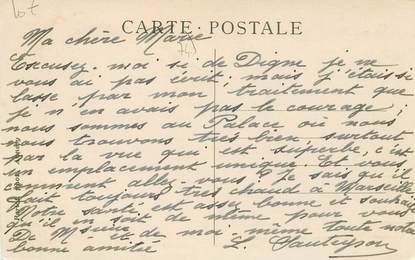 lot
CARTE POSTALE
Ma chère Marie
Excusez moi si de Digne je ne
vous ai pas écrit; mais j'étais si
lasse par mon traitement que
je n'en avais pas le courage,
nous sommes au Palace où nous
nous trouvons très bien surtout
par la vue qui est superbe, c'est
un emplacement unique. Et vous
comment allez vous, Je sais qu'il
fait toujours très chaud à Marseille
Notre santé est assez bonne et souhaite
qu'il en soit de même pour vous
De M et de moi-même toute notre
bonne amitié
L.